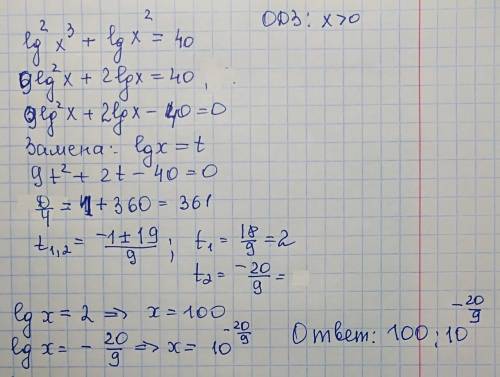 lg²x³ + lgx² = 40
ОДЗ: x>0
9lg²x + 2lgx = 40
9lg²x + 2lgx - 40 = 0
Замена: lgx = t
9t² + 2t - 40 = 0
D/4 = 1 + 360 = 361
t₁,₂ = (-1±19)/9 ; t₁ = 18/9 = 2
t₂ = -20/9 =
lg x = 2 => x = 100
lg x = - 20/9 => x = 10^(-20/9)
Ответ: 100 ; 10^(-20/9)